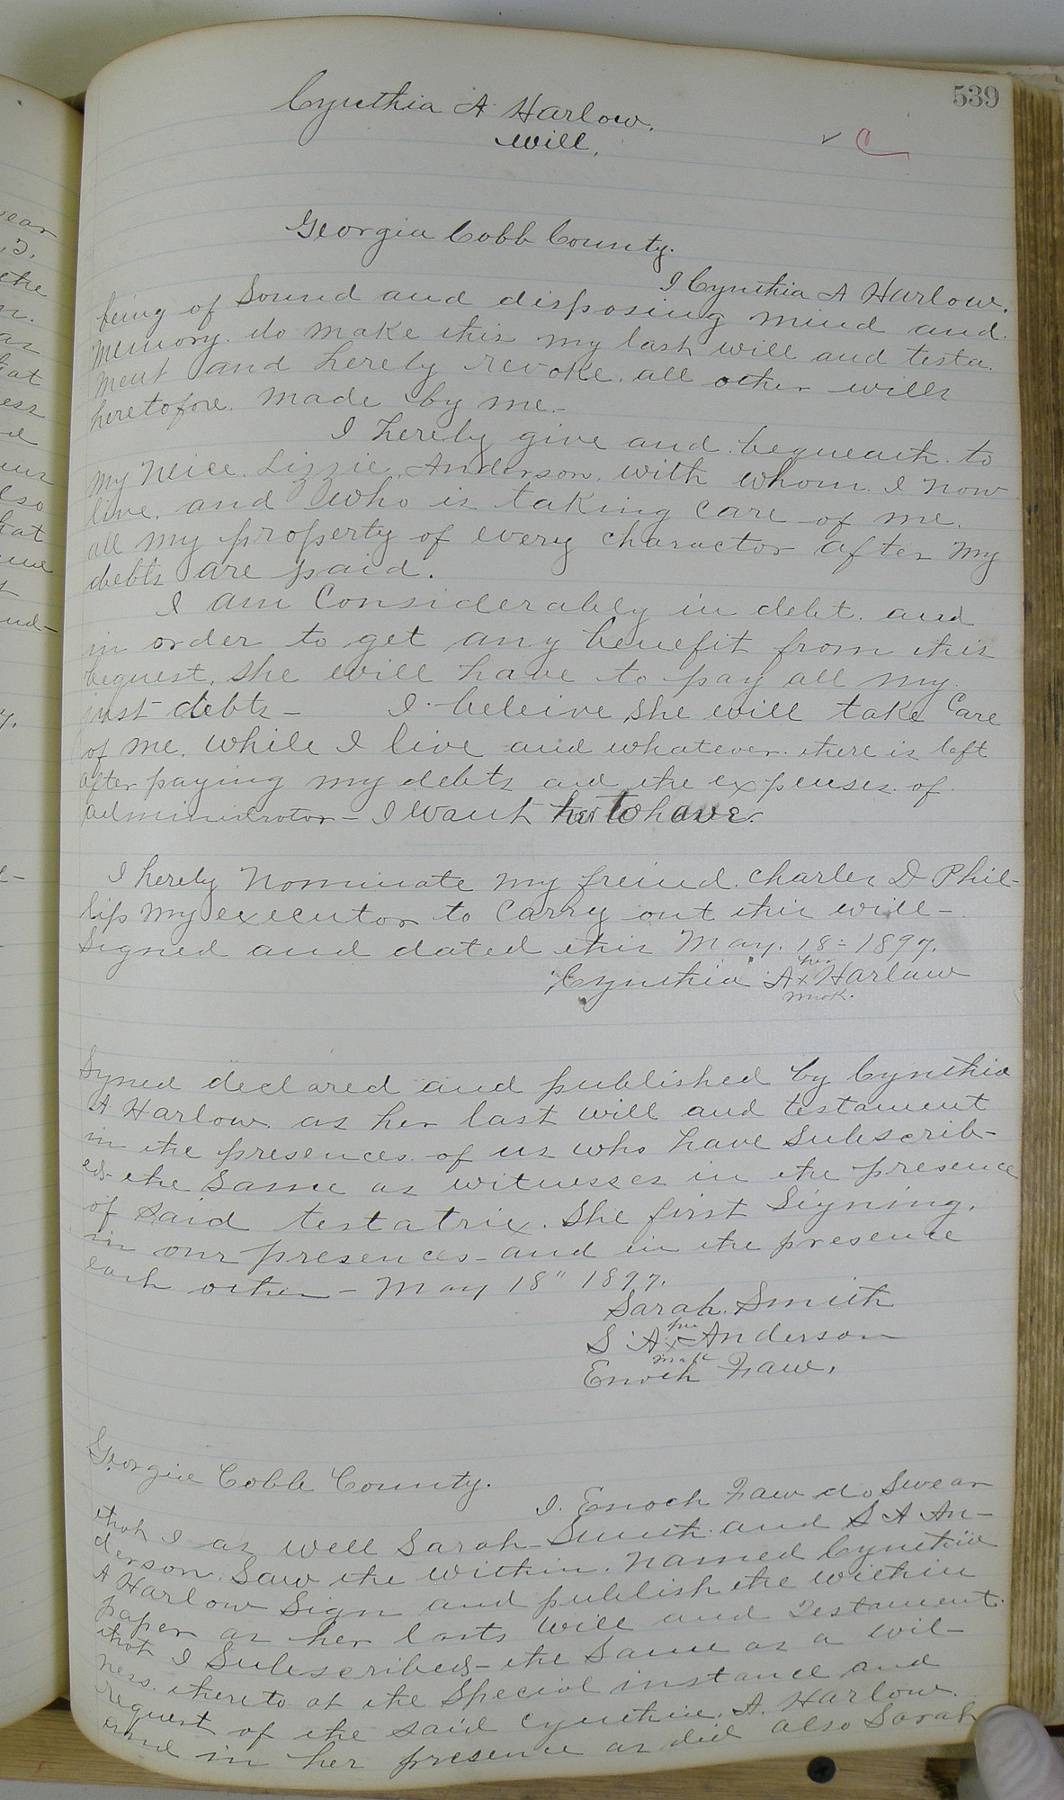 539
Cynthia A Harlow.
Will.
Georgia Cobb County.
I Cynthia A Harlow.
being of Sound and disposing mind and
memory. do make this my last will and testa.
ment and hereby revoke. all other wills
heretofore. made by me.-
I hereby give and bequeath to
my Neice. Lizzie. Anderson. with whom I now
live. and who is taking care of me.
all my property of every charactor after my
debts are paid.
I am Considerably in debt. and
in order to get any benefit from this
bequest. she will have to pay all my
just debts - I beleive she will take Care
of me. while I live and whatever there is left
after paying my debts and the expenses of
administrator - I want her to have.
I hereby Nominate my freind. Charles D Phil-
lips my executor to carry out this will -
Signed and dated this May. 18 - 1897.
her
Cynthia A x Harlow
mark.
Syned declared and published by Cynthia
A Harlow. as her last will and testament
in the presences of us who have subscrib-
ed the Same as witnesses in the presence
of said testatrix. She first Signing.
in our presences - and in the presence
each other - May 18" 1897.
Sarah. Smith
her
S A x Anderson
mark
Enoch Faw.
Georgia Cobb County.
I. Enoch Faw do Swear
that I as well Sarah Smith and S A An-
derson. Saw the within. named Cynthia
A Harlow Sign and publish the within
paper as her lasts will and Testament.
that I Subscribed the Same as a wit-
ness. thereto at the Special instance and
request of the said Cynthia. A. Harlow.
and in her presence as did also Sarah